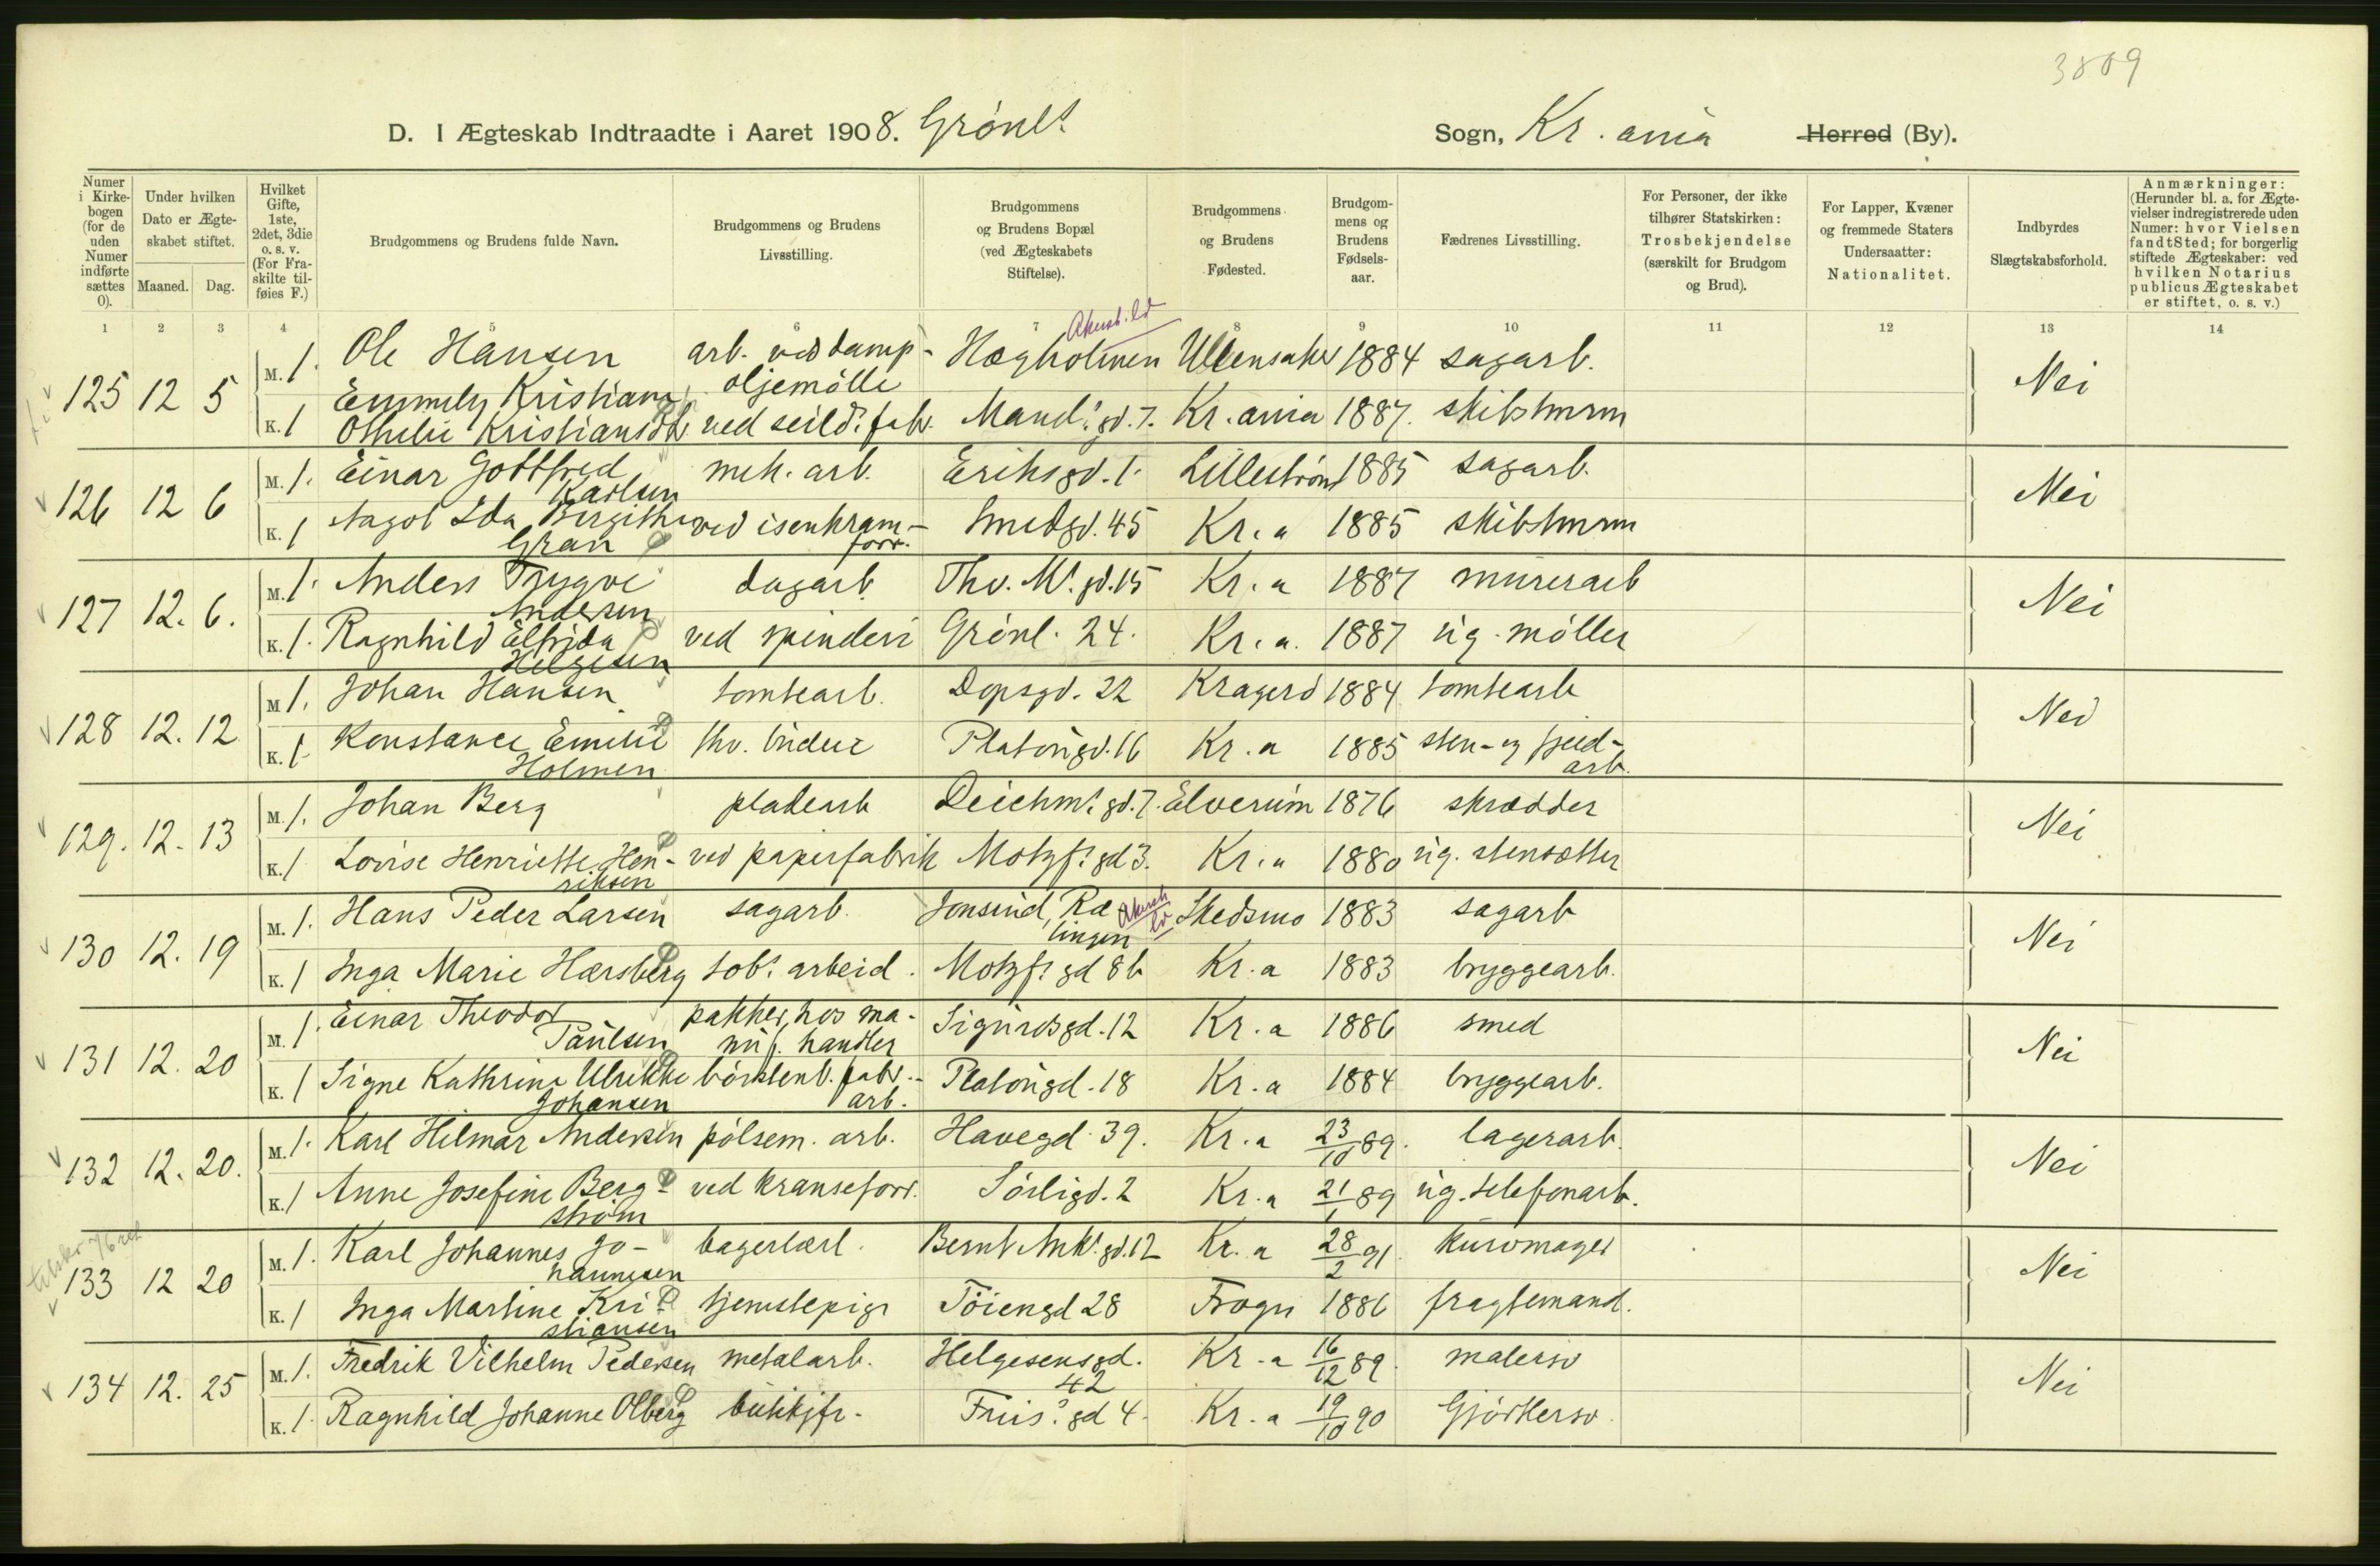 3809
D. I Ægteskab Indtraadte i Aaret 1908. Grønl? Sogn, Kr.ania Herred (By).
Numer i Kirkebogen (for de uden Numer indførte sættes 0).
Under hvilken Dato er Ægteskabet stiftet.
Maaned. Dag.
Hvilket Gifte, 1ste, 2det, 3die o. s. v. (For Fraskilte tilføies F.)
Brudgommens og Brudens fulde Navn.
Brudgommens og Brudens Livsstilling.
Brudgommens og Brudens Bopæl (ved Ægteskabets Stiftelse).
Brudgommens og Brudens Fødested.
Brudgommens og Brudens Fødselsaar.
Fædrenes Livsstilling.
For Personer, der ikke tilhører Statskirken: Trosbekjendelse (særskilt for Brudgom og Brud).
For Lapper, Kvæner og fremmede Staters Undersaatter: Nationalitet.
Indbyrdes Slægtskabsforhold.
Anmærkninger: (Herunder bl. a. for Ægtevielser indregistrerede uden Numer: hvor Vielsen fandt Sted; for borgerlig stiftede Ægteskaber: ved hvilken Notarius publicus Ægteskabet er stiftet, o. s. v.)
1 2 3 4 5 6 7 8 9 10 11 12 13 14
125 12 5 M. 1. Ole Hansen arb. ved dampoljemølle Hægholmen Akersh. Ullensaker 1884 sagarb. Nei
K. 1 Emmely Kristiane Othilie Kristiansen ved seild. fabr. Mand. gd. 7. Kr.ania 1887. skibstmrm
126 12 6 M. 1. Einar Gottfred Karlsen mek. arb. Eriksgd. 1. Lillestrøm 1885 sagarb. Nei
K. 1 Aagot Ida Birgithe Gran ved isenkramforr. Smedgd. 45 Kr.a 1885 skibstmrm
127 12. 6. M. 1. Anders Trygve Andersen dagarb. Thv. M. gd. 15 Kr.a 1887 murerarb Nei
K. 1. Ragnhild Elfrida Helgesen ved spinderi Grønl. 24. Kr.a. 1887 ug. møller
128 12. 12 M. 1. Johan Hansen tomtearb. Dopsgd. 22 Kragerø 1884 tomtearb Nei
K. 1. Konstance Emilie Holmen Platougd. 16 Kr.a 1885 sten- og fjeldarb.
129. 12. 13 M. 1. Johan Berg pladearb Deichm. gd. 7. Elverum 1876 skrædder Nei
K. 1 Lovise Henriette Henriksen ved papirfabrik Motzf. gd 3. Kr.a 1880 ug. stensætter
130 12. 19 M. 1. Hans Peder Larsen sagarb. Rælingen Akersh Skedsmo 1883 sagarb Nei
K. 1 Inga Marie Hærsberg tob. arbeid. Motzf. gd 8b Kr.a 1883 bryggearb.
131 12. 20 M. 1. Einar Theodor Paulsen pakker, hos manuf. handler Sigurdsgd. 12 Kr.a 1886 smed Nei
K. 1 Signe Kathrine Ulrikke Johansen børstenb. fabr.-arb. Platougd. 18 Kr.a 1884 bryggearb.
132 12. 20. M. 1. Karl Hilmar Andersen pølsem. arb. Havegd. 39. Kr.a 23/10 89. lagerarb. Nei
K. 1 Anne Josefine Bergstrøm ved kranseforr. Sørligd. 2 Kr.a 21/1 89 ug. telefonarb.
133 12 20 M. 1. Karl Johannes Johannesen bagerlærl. Bernt Ank. gd. 12 Kr.a 28/2 91. kurvmager Nei
K. 1 Inga Martine Kristiansen tjenstepige Tøiengd 28 Frogn 1886 fragtemand.
134 12. 25 M. 1. Fredrik Vilhelm Pedersen metalarb. Helgesensgd. 42 Kr.a 16/12 89. malersv Nei
K. 1. Ragnhild Johanne Olberg butikjfr. Friis. gd 4. Kr.a 19/10 90 Gjørtlersv.